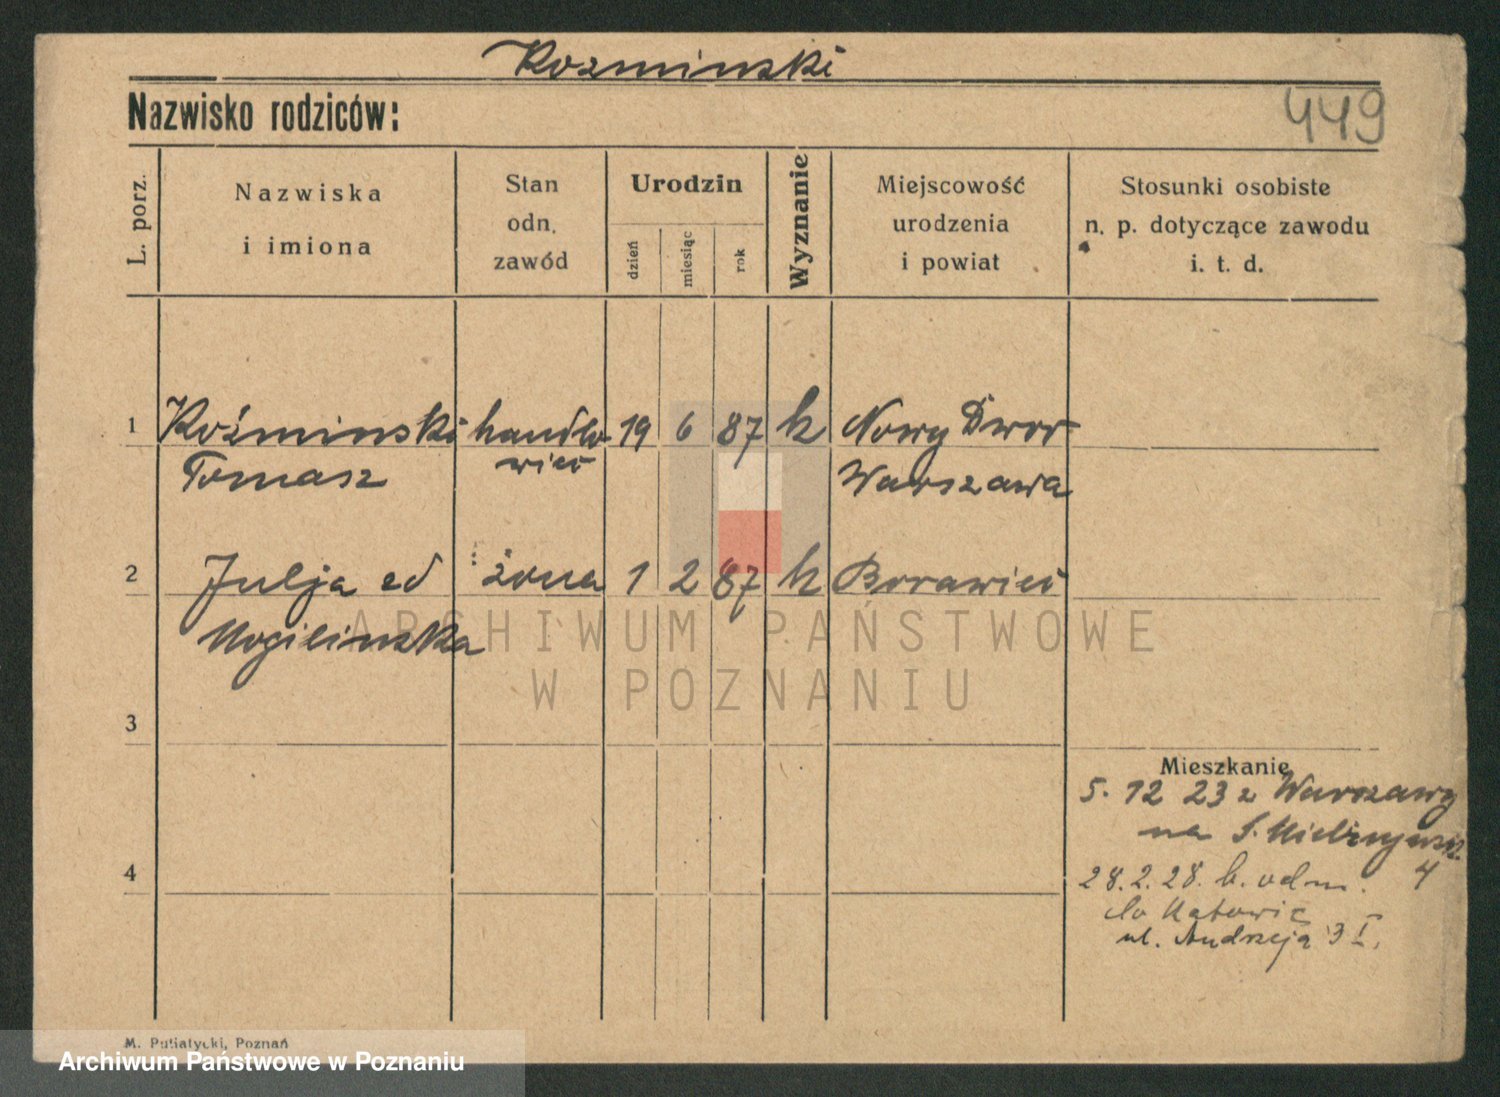 Koźminski
Nazwisko rodziców:
449
L. porz.
Nazwiska
i imiona
Stan
odn.
zawód
Urodzin
dzień
miesiąc
rok
Wyznanie
Miejscowość
urodzenia
i powiat
Stosunki osobiste
n. p. dotyczące zawodu
i. t. d.
1 Koźminski handlo 19 6 87 k Nowy Dwor
Tomasz wiec Warszawa
2 Julja żona 1 2 87 k
Mogilinska
3
Mieszkanie
5. 12 23 z Warszawy
na
4
28.2.28. b. odm. 4
do Katowic
ul. Andrzeja 3 I.
M. Putiatycki, Poznań
ARCHIWUM PAŃSTWOWE
W POZNANIU
Archiwum Państwowe w Poznaniu